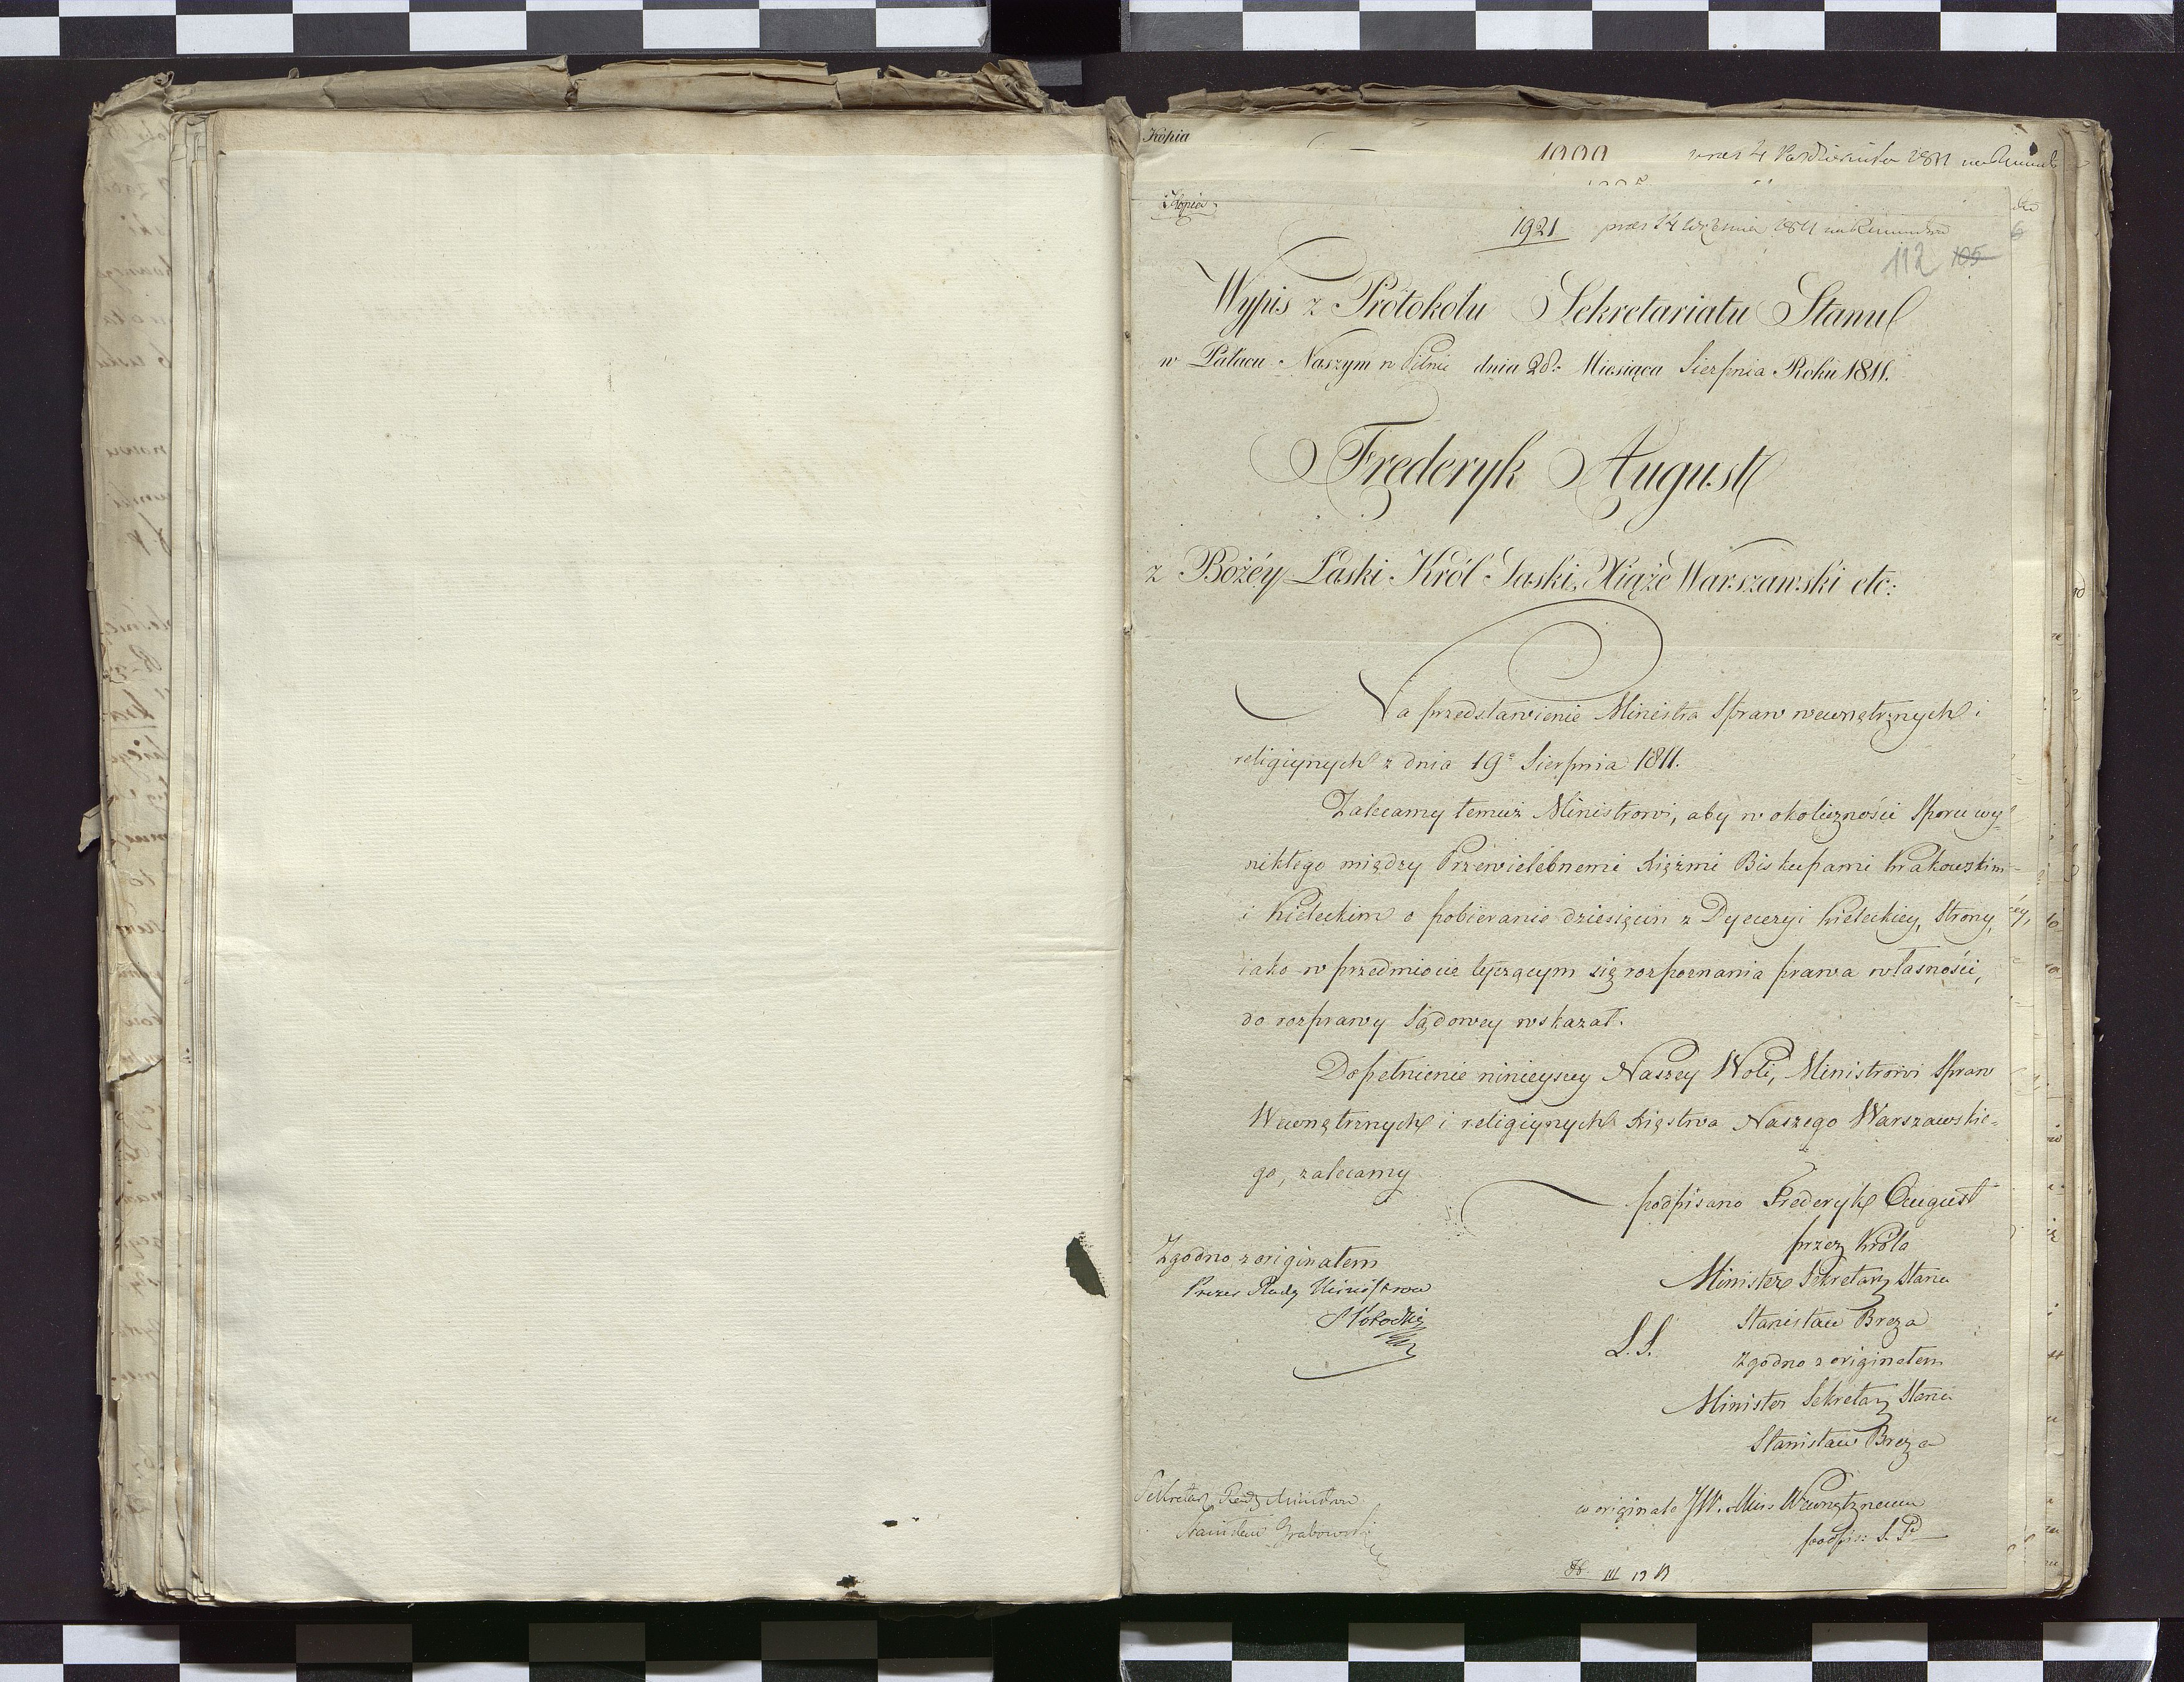 Kopia
1999 4 Października 1811
Kopia
1921 prez 14 Września 1811 na Rem
112 105
Wypis z Protokołu Sekretariatu Stanu
w Pałacu Naszym w Pilnic dnia 28. Miesiąca Sierpnia Roku 1811.
Frederyk August
z Bożéy Łaski Król Saski, Xiąże Warszawski etc:
Na przedstawienie Ministra Spraw wewnętrznych i
religiynych z dnia 19º Sierpnia 1811.
Zalecamy temuż Ministrowi, aby w okoliczności Sporu wy-
nikłego między Przewielebnemi Xiężmi Biskupami Krakowskim
i Kieleckim o pobieranie dziesięcin z Dyecezyi Kieleckiey, Strony,
iako w przedmiocie tyczącym się rozpoznania prawa własności,
do rozprawy Sądowey wskazał.
Dopełnienie ninieyszey Naszey Woli, Ministrowi Spraw
Wewnętrznych i religiynych Xięstwa Naszego Warszawskie-
go, zalecamy
podpisano Frederyk August
przez Króla
Minister Sekretarz Stanu
Stanisław Breza
L.S.
Zgodno z originałem
Minister Sekretarz Stanu
Stanisław Breza
Zgodno z originałem
Prezes Rady Ministrów
S Potocki
Sekretarz Rady Ministrów
Stanisław Grabowski
w originale JW. Min. Wewnętrznemu
podpis: S. P.